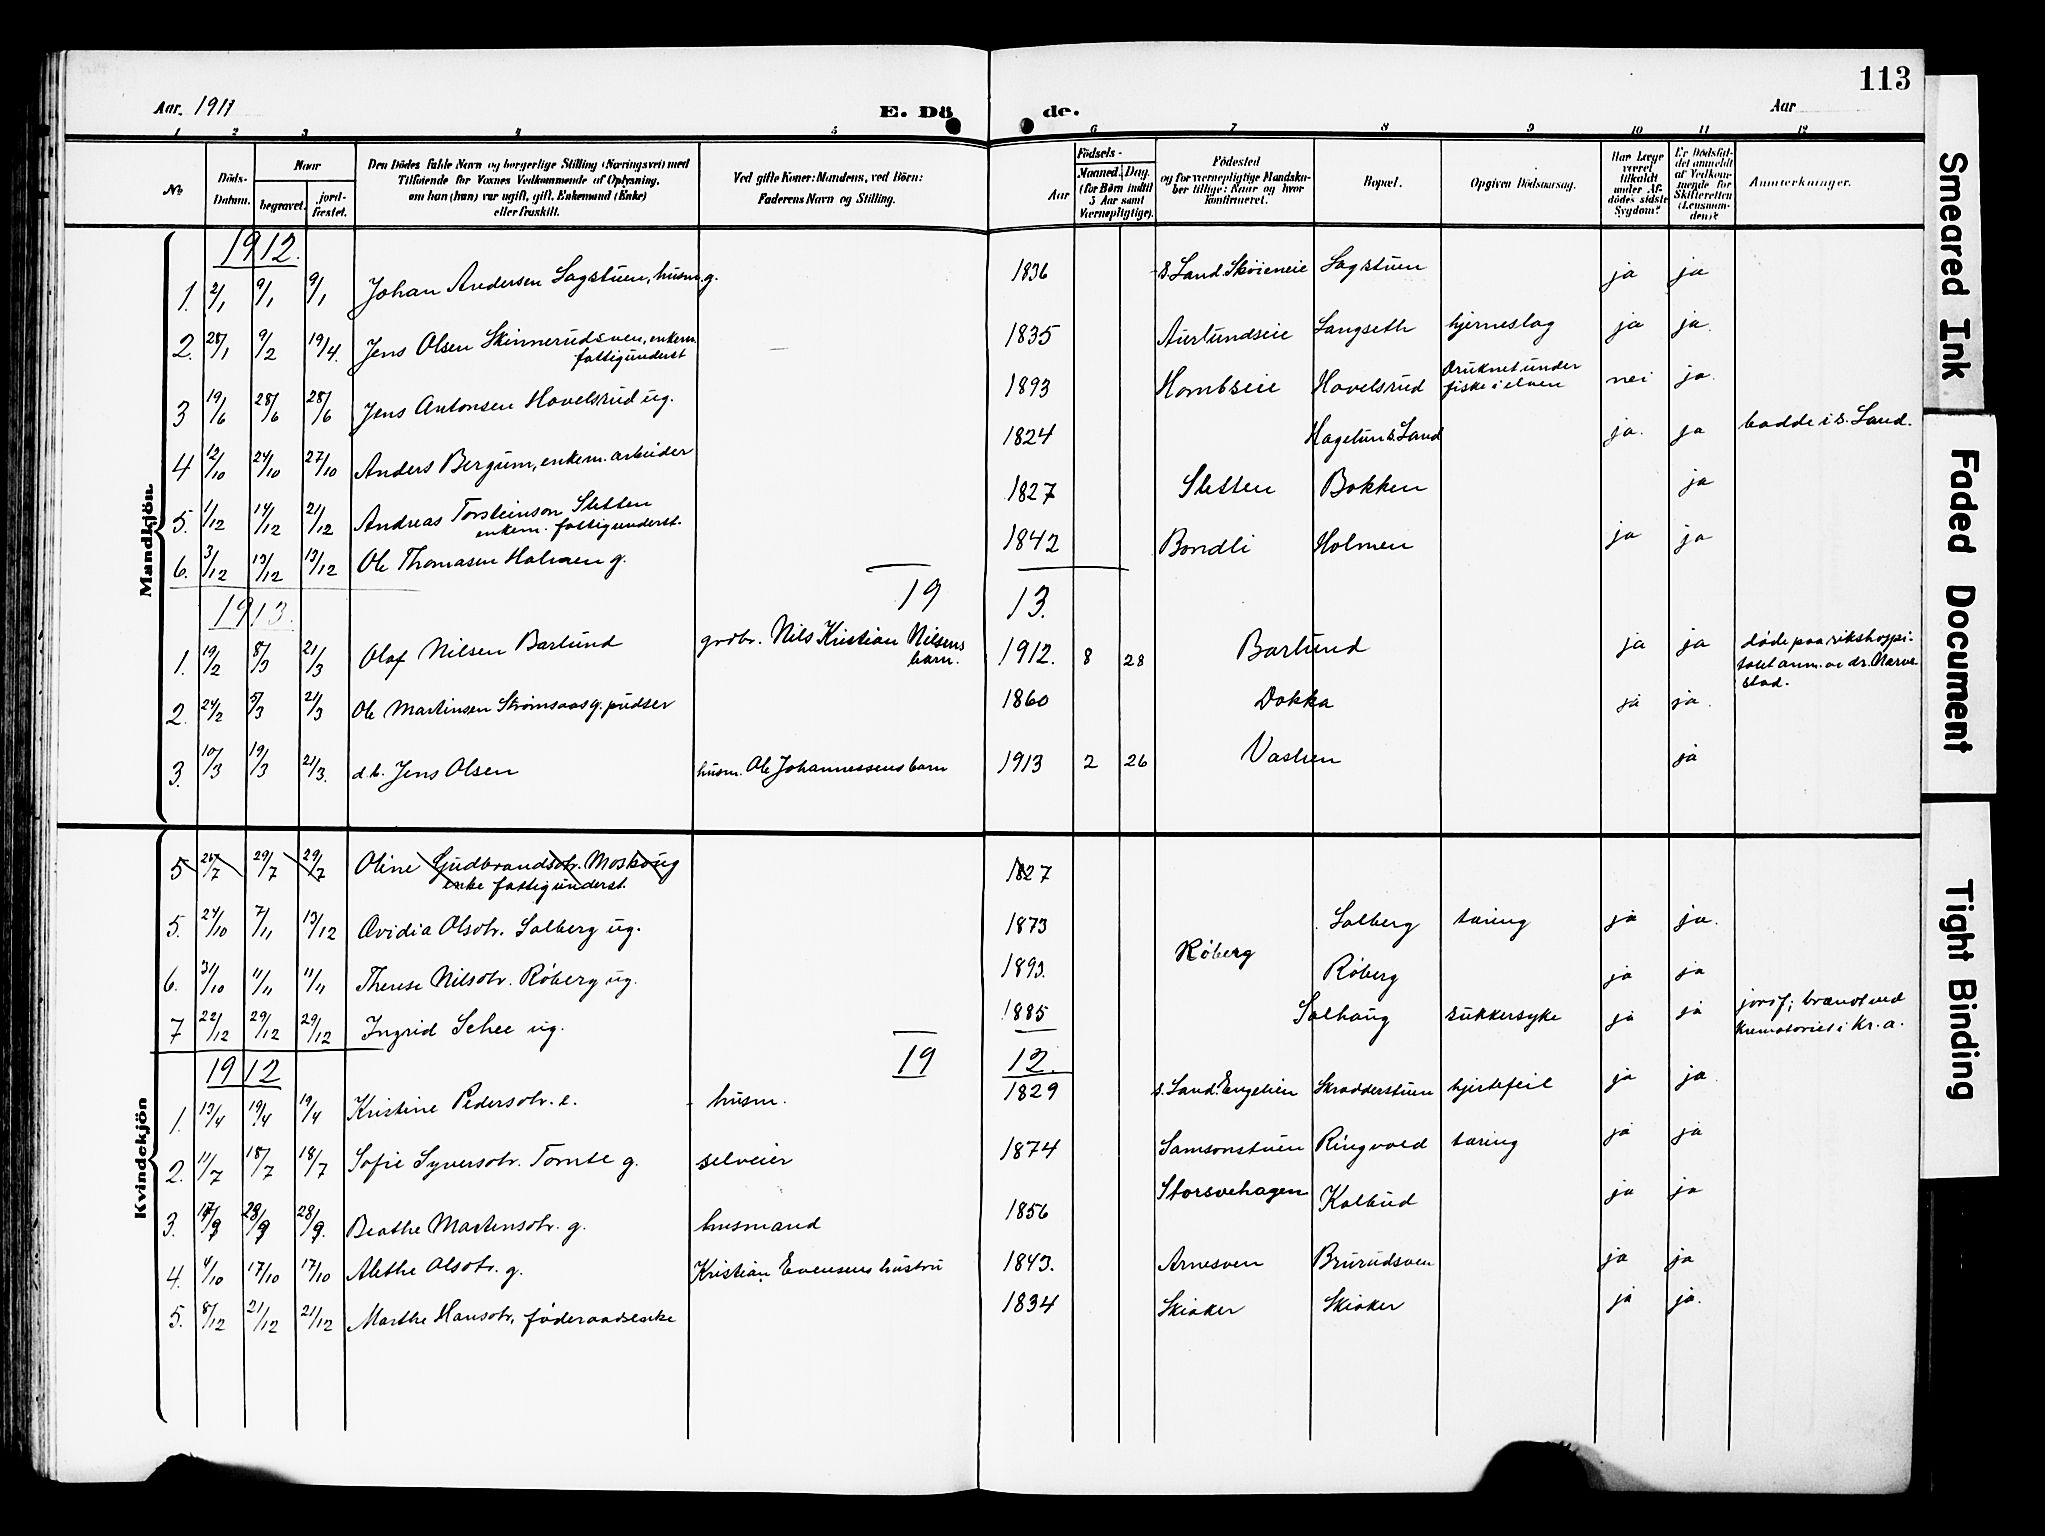 113
Aar. 1911
E. Dö de.
Aar
1 2 3 4 5 6 7 8 9 10 11 12
No
Döds-Datum.
Naar
begravet.
jord-fæstet.
Den Dödes fulde Navn og borgerlige Stilling (Næringsvei) med
Tilföiende for Voxnes Vedkommende af Oplysning,
om han (hun) var ugift, gift, Enkemand (Enke)
eller fraskilt.
Ved gifte Koner: Mandens, ved Börn:
Faderens Navn og Stilling.
Födsels-
Aar
Maaned. Dag.
(for Börn indtil
5 Aar samt
Værnepligtige).
Födested
og for værnepligtige Mandska-
ber tillige: Naar og hvor
konfirmeret.
Bopæl.
Opgiven Dödsaarsag.
Har Læge
været
tilkaldt
under Af-
dödes sidste
Sygdom?
Er Dödsfal-
det anmeldt
af Vedkom-
mende for
Skifteretten
(Lensman-
den)?
Anmærkninger.
Mandkjön.
1912.
1. 2/1 9/1 9/1 Johan Andersen Sagstuen, husm. g. 1836 S. Land. Skøieneie Sagstuen ja ja
2. 28/1 9/2 19/4. Jens Olsen Skinnerudsven, enkem. 1835 Aurlundseie Langseth hjerneslag ja ja.
fattigunderst
3 19/6 28/6 28/6 Jens Antonsen Hovelsrud ug. 1893 Hombseie Hovelsrud Druknet under nei ja.
fiske i elven
4 12/10 24/10 27/10 Anders Bergum, enkem. arbeider 1824 Hagelun S. Land ja. ja bodde i S. Land.
5. 1/12 14/12 21/12 Andreas Torsteinson Sletten 1827 Sletten Bakken ja
enkem. fattigunderst.
6. 3/12 13/12 13/12 Ole Thomasen Holmen g. 1842 Bondli Holmen ja ja
1913. 19 13.
1. 19/2 8/3 21/3 Olaf Nilsen Barlund grdbr. Nils Kristian Nilsens 1912. 8 28 Barlund ja ja døde paa rikshospi-
barn. talet anm. av dr. Narve
stad.
2. 24/2 5/3 21/3 Ole Martinsen Strømsaas g. pudser 1860 Dokka ja ja.
3. 10/3 19/3 21/3. d.b. Jens Olsen husm. Ole Johannessens barn 1913 2 26 Vaslien ja
Kvindekjön
5 26/7 29/7 29/7 Oline Gudbrandsdtr. Moshoug 1827
enke fattigunderst.
5. 24/10 7/11 13/12 Ovidia Olsdtr. Solberg ug. 1873 Solberg tæring ja ja.
6. 31/10 11/11 11/11 Therese Nilsdtr. Røberg ug. 1893. Røberg Røberg ja ja
7 22/12 29/12 29/12 Ingrid Schee ug. 1885 Solhaug sukkersyke ja ja jordf; brændt ved
krematoriet i Kr.a.
1912 19 12.
1. 13/4 19/4 19/4 Kristine Pedersdtr. e. husm. 1829 S. Land. Engelien Skradderstuen hjertefeil ja ja
2. 11/7 18/7 18/7 Sofie Syversdtr. Tomte g. selveier 1874 Samsonstuen Ringvold tæring ja ja
3. 17/9 28/9 28/9. Beathe Martensdtr. g. husmand 1856 Storsvehagen Kolbud ja ja
4. 4/10 17/10 17/10 Alethe Olsdtr. g. Kristian Evensens hustru 1843. Arnesven Brurudsven ja ja
5. 8/12 21/12 21/12 Marthe Hansdtr, føderaadsenke 1834 Skiaker Skiaker ja ja.
Smeared Ink
Faded Document
Tight Binding